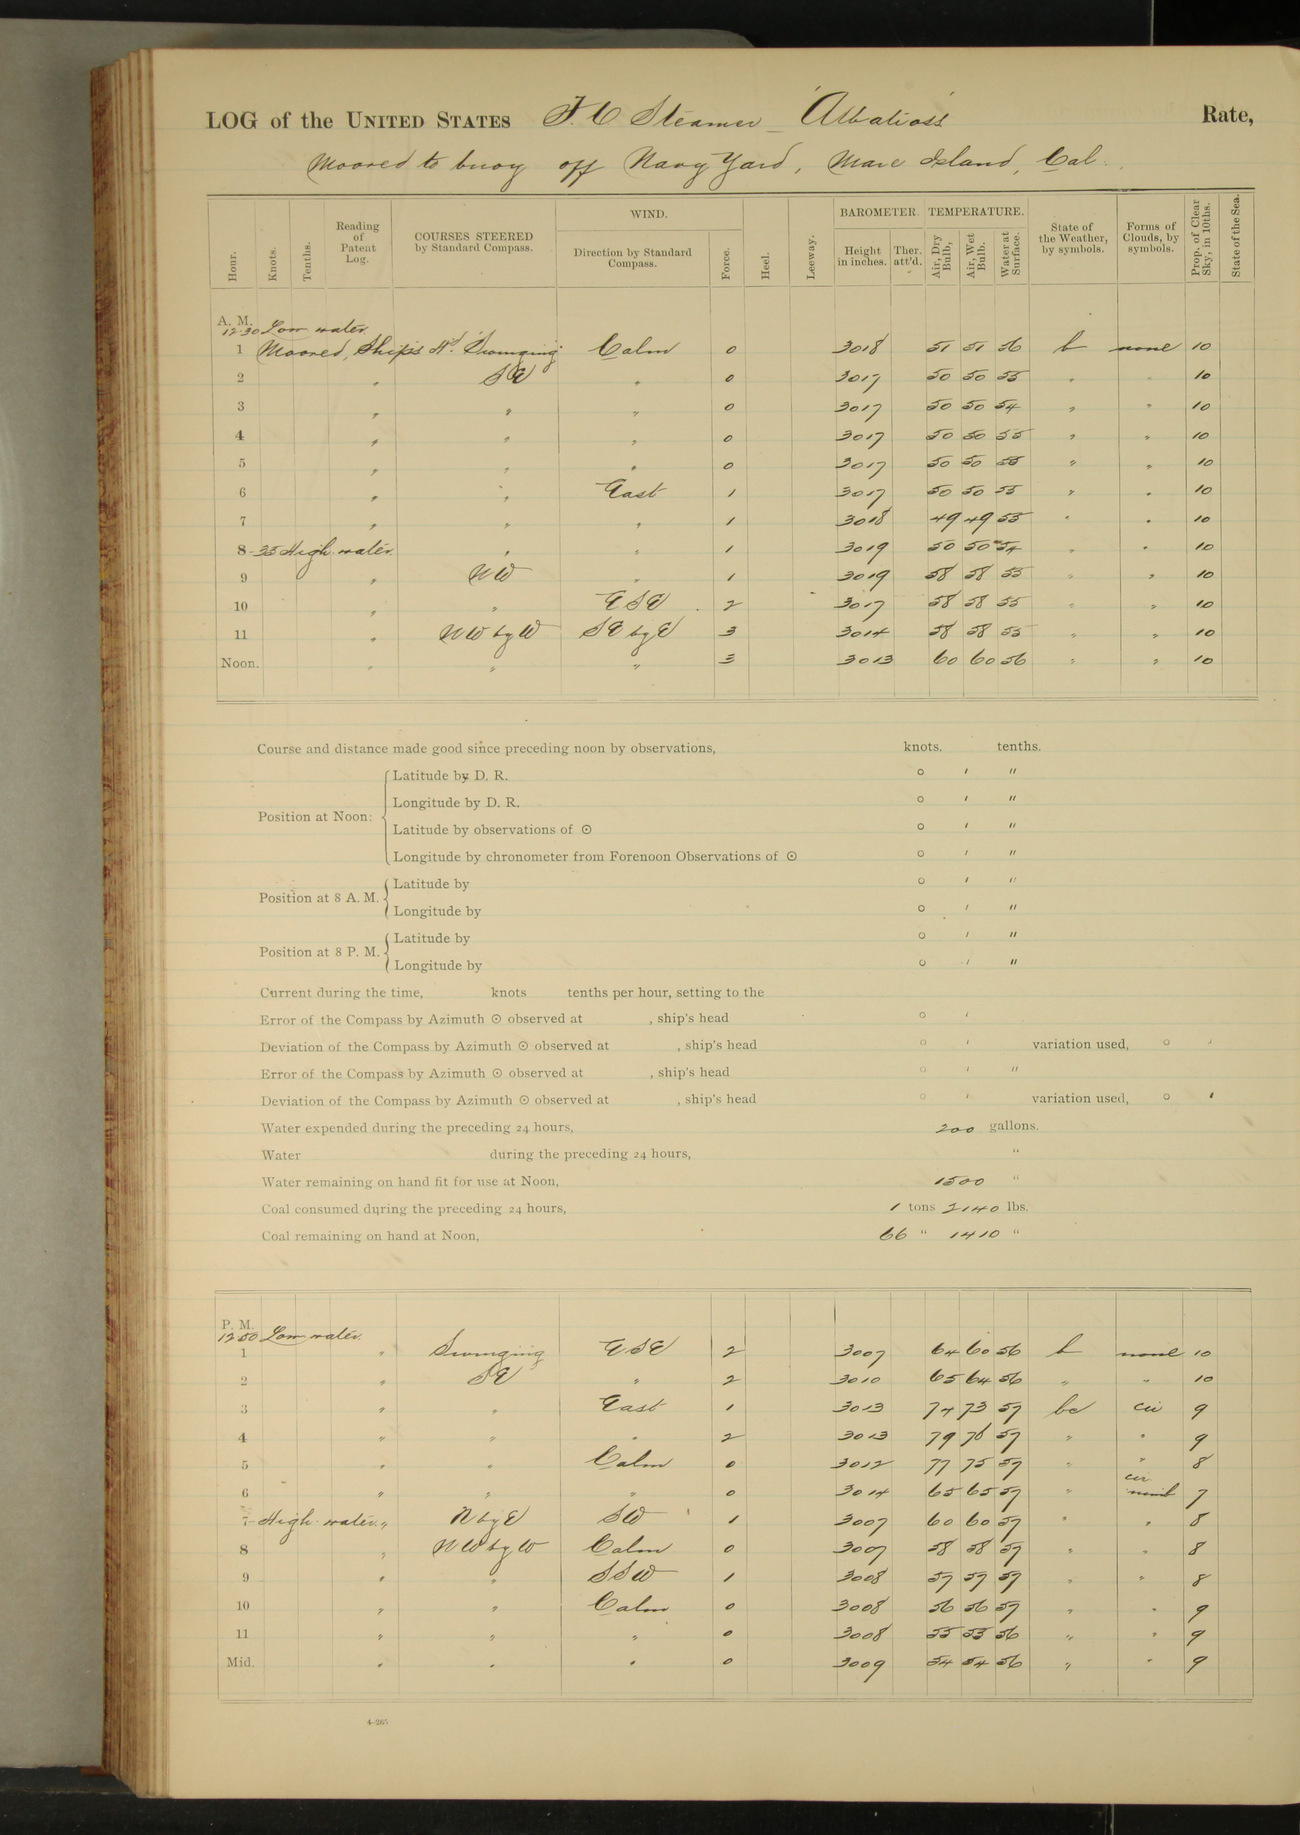 LOG of the UNITED STATES F. C Steamer "Albatross" Rate,
Moored to buoy off Navy Yard, Mare Island, Cal.
Hour. Knots. Tenths. Reading of Patent Log. COURSES STEERED by Standard Compass. WIND. Direction by Standard Compass. Force. Heel. Leeway. BAROMETER. Height in inches. Ther. att'd. TEMPERATURE. Air, Dry Bulb, Air, Wet Bulb. Water at Surface. State of the Weather, by symbols. Forms of Clouds, by symbols. Prop. of Clear Sky, in 10ths. State of the Sea.
A. M.
12.30 Low water.
1 Moored, Ship's Hd. Swinging Calm 0 3018 51 51 56 b none 10
2 " SE " 0 3017 50 50 55 " " 10
3 " " " 0 3017 50 50 54 " " 10
4 " " " 0 3017 50 50 55 " " 10
5 " " " 0 3017 50 50 55 " " 10
6 " " East 1 3017 50 50 55 " " 10
7 " " " 1 3018 49 49 55 " " 10
8-35 High water. " " 1 3019 50 50 54 " " 10
9 " NW " 1 3019 58 58 55 " " 10
10 " " ESE 2 3017 58 58 55 " " 10
11 " NW by W SE by E 3 3014 58 58 55 " " 10
Noon. " " " 3 3013 60 60 56 " " 10
Course and distance made good since preceding noon by observations, knots. tenths.
Position at Noon:
Latitude by D. R. ° ′ ″
Longitude by D. R. ° ′ ″
Latitude by observations of ☉ ° ′ ″
Longitude by chronometer from Forenoon Observations of ☉ ° ′ ″
Position at 8 A. M.
Latitude by ° ′ ″
Longitude by ° ′ ″
Position at 8 P. M.
Latitude by ° ′ ″
Longitude by ° ′ ″
Current during the time, knots tenths per hour, setting to the
Error of the Compass by Azimuth ☉ observed at , ship's head ° ′
Deviation of the Compass by Azimuth ☉ observed at , ship's head ° ′ variation used, ° ′
Error of the Compass by Azimuth ☉ observed at , ship's head ° ′ ″
Deviation of the Compass by Azimuth ☉ observed at , ship's head ° ′ variation used, ° ′
Water expended during the preceding 24 hours, 200 gallons.
Water during the preceding 24 hours, "
Water remaining on hand fit for use at Noon, 1500 "
Coal consumed during the preceding 24 hours, 1 tons 2140 lbs.
Coal remaining on hand at Noon, 66 " 1410 "
P. M.
12.50 Low water.
1 " Swinging ESE 2 3007 64 60 56 b none 10
2 " SE " 2 3010 65 64 56 " " 10
3 " " East 1 3013 74 73 57 bc cir 9
4 " " " 2 3013 79 76 57 " " 9
5 " " Calm 0 3012 77 75 57 " " 8
6 " " " 0 3014 65 65 57 " cir nimb 7
7 High water. " N by E SW 1 3007 60 60 57 " " 8
8 " NW by W Calm 0 3007 58 58 57 " " 8
9 " " SSW 1 3008 57 57 57 " " 8
10 " " Calm 0 3008 56 56 57 " " 9
11 " " " 0 3008 55 55 56 " " 9
Mid. " " " 0 3009 54 54 56 " " 9
4-265